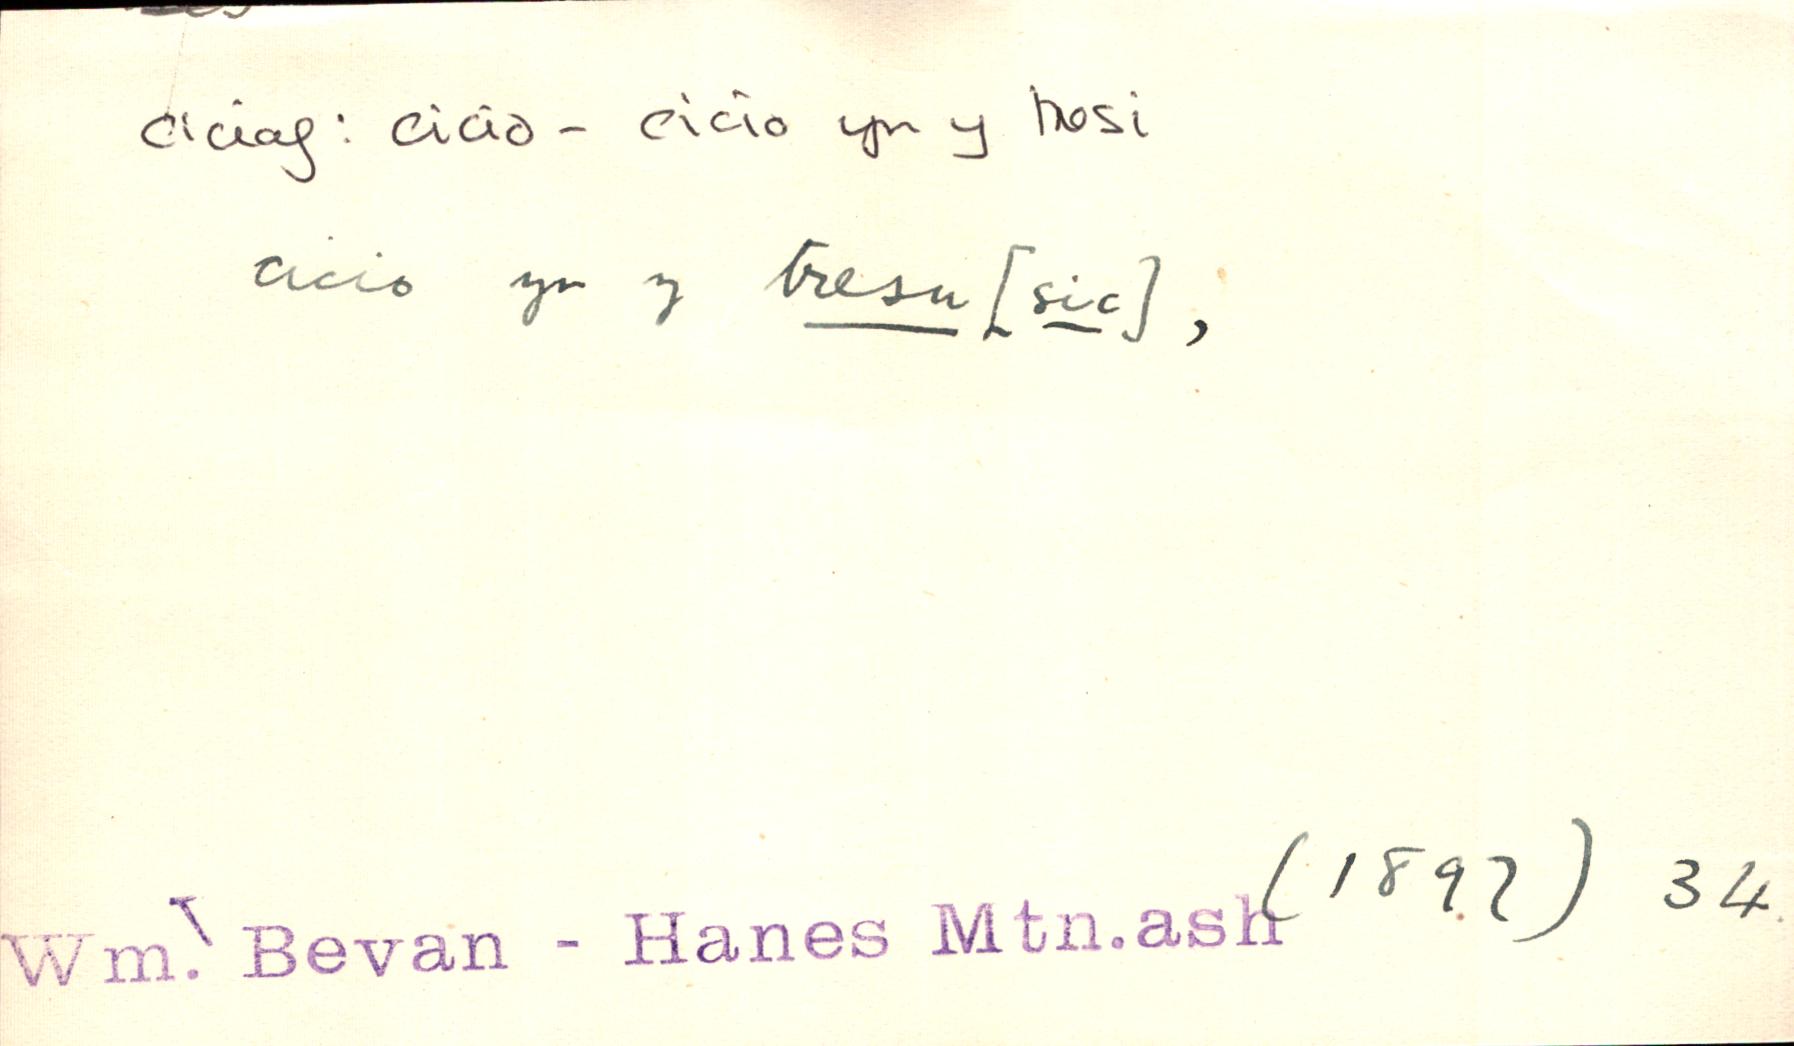 ciciaf: cicio - cicio yn y tresi
cicio yn y tresu [sic],
Wm. Bevan - Hanes Mtn.ash (1897) 34